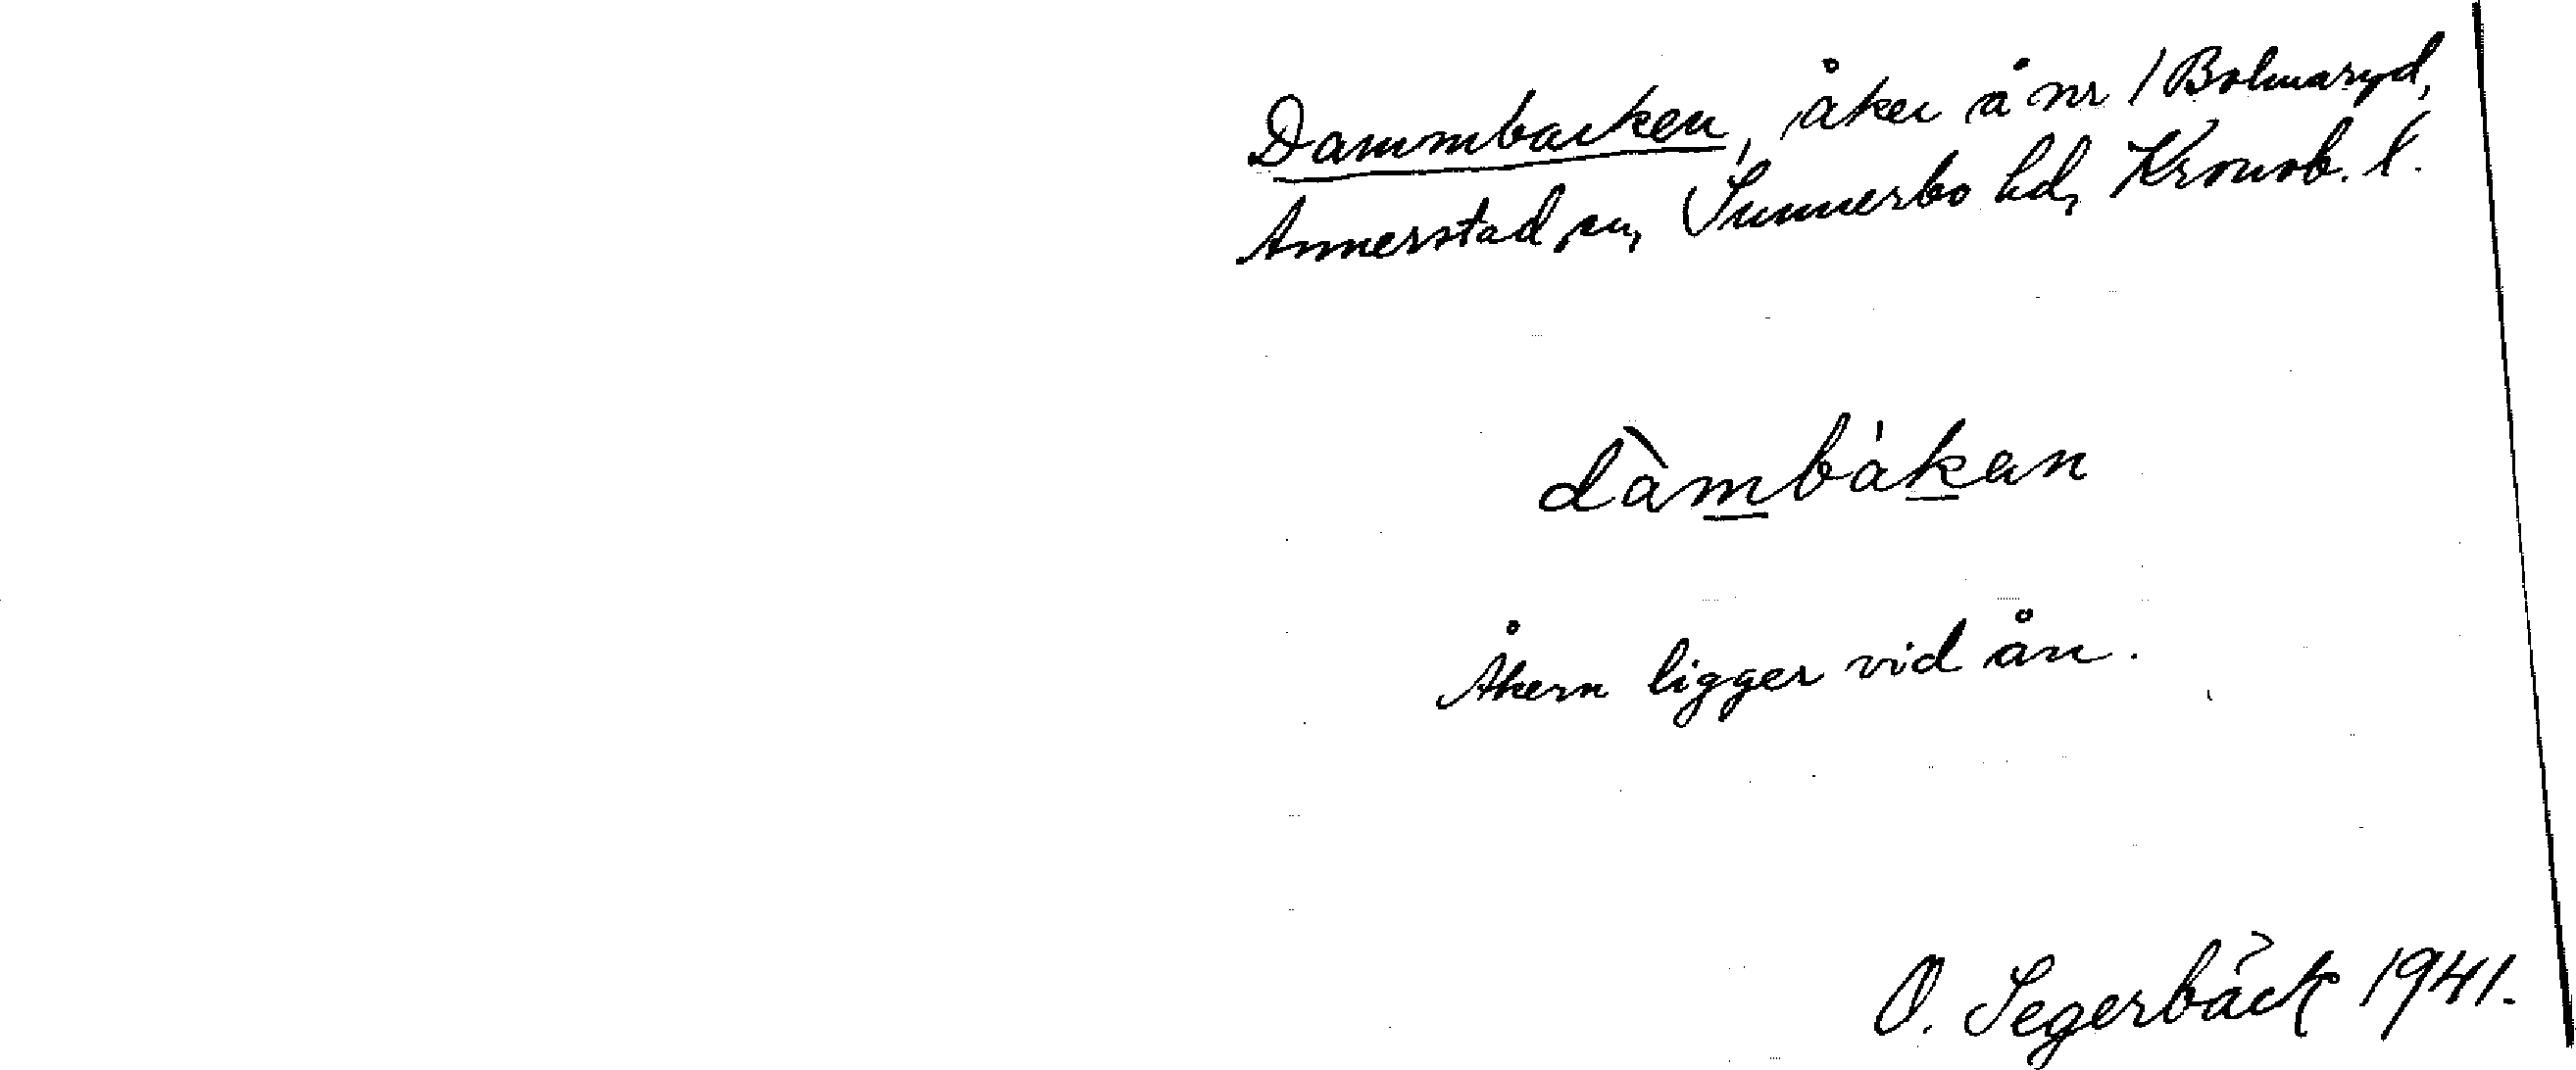 Dammbacken, åker å nr 1 Bolmaryd,
Annerstad sn, Sunnerbo hd, Kronob. l.
dàmbákan
Åkern ligger vid ån.
O. Segerbäck 1941.